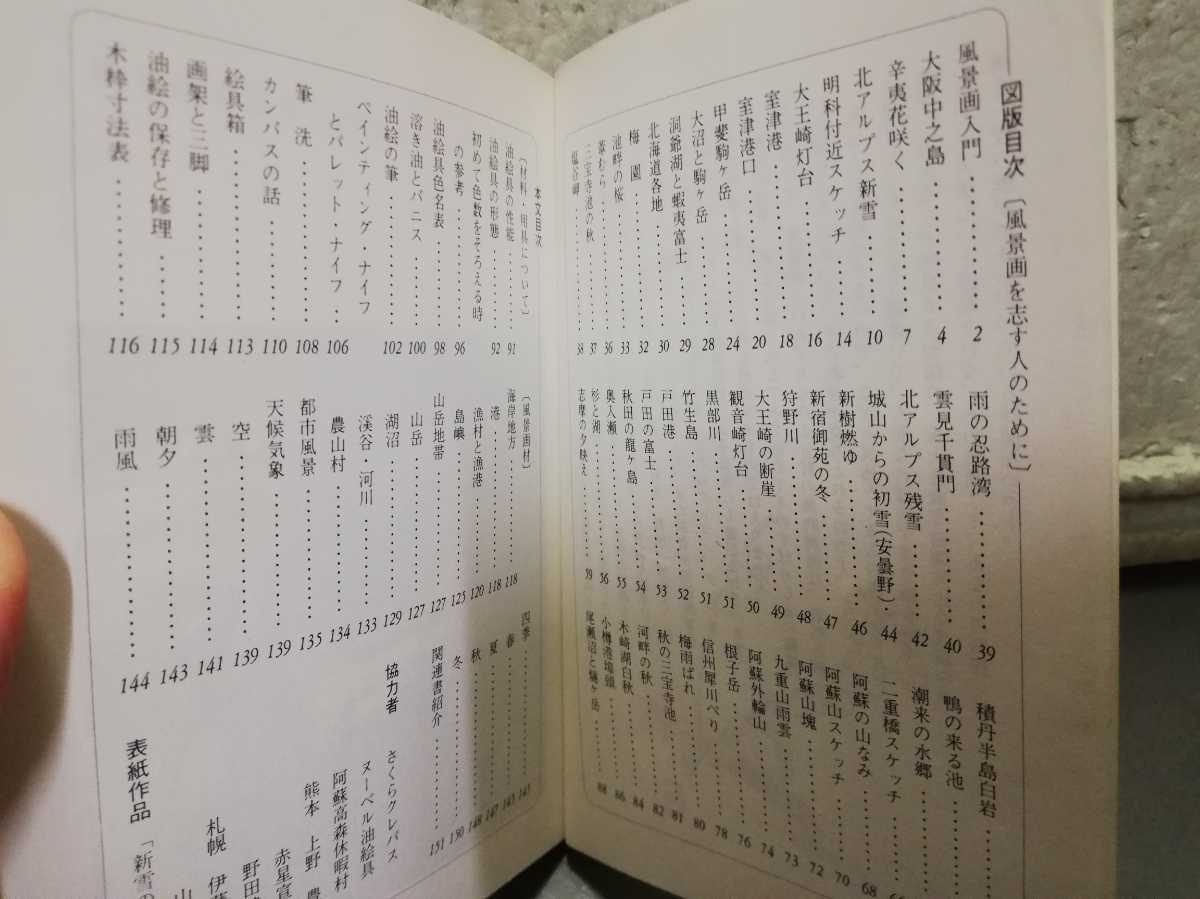 図版目次〔風景画を志す人のために〕
風景画入門 2
大阪中之島 4
辛夷花咲く 7
北アルプス新雪 10
明科付近スケッチ 14
大王崎灯台 16
室津港 18
室津港口 20
甲斐駒ヶ岳 24
大沼と駒ヶ岳 28
洞爺湖と蝦夷富士 29
北海道各地 30
梅園 32
池畔の桜 33
葦むら 36
三宝寺池の秋 37
塩谷岬 38
雨の忍路湾 39
雲見千貫門 40
北アルプス残雪 42
城山からの初雪(安曇野) 44
新樹燃ゆ 46
新宿御苑の冬 47
狩野川 48
大王崎の断崖 49
観音崎灯台 50
黒部川 51
竹生島 51
戸田港 52
戸田の富士 53
秋田の龍ヶ島 54
奥入瀬 55
杉と湖 56
志摩の夕映え 59
積丹半島白岩
鴨の来る池
潮来の水郷
二重橋スケッチ 68
阿蘇の山なみ 70
阿蘇山スケッチ 72
阿蘇山塊 73
九重山雨雲 74
阿蘇外輪山 76
根子岳 78
信州犀川べり 80
梅雨ばれ 81
秋の三宝寺池 82
河畔の秋 84
木崎湖白秋 86
小樽港埠頭 88
尾瀬沼と燧ヶ岳
本文目次
〔材料・用具について〕
油絵具の性能 91
油絵具の形態 92
初めて色数をそろえる時
の参考 96
油絵具色名表 98
溶き油とバニス 100
油絵の筆 102
ペインティング・ナイフ
とパレット・ナイフ 106
筆洗 108
カンバスの話 110
絵具箱 113
画架と三脚 114
油絵の保存と修理 115
木枠寸法表 116
〔風景画材〕
海岸地方 118
港 118
漁村と漁港 120
島嶼 125
山岳地帯 127
山岳 127
湖沼 129
渓谷・河川 133
農山村 134
都市風景 135
天候気象 139
空 139
雲 141
朝夕 143
雨風 144
四季 145
春 145
夏 147
秋 148
冬 150
関連書紹介 151
協力者 さくらクレパス
ヌーベル油絵具
阿蘇高森休暇村
熊本 上野 豊
赤星宣
野田
札幌 伊藤
山
表紙作品 「新雪の